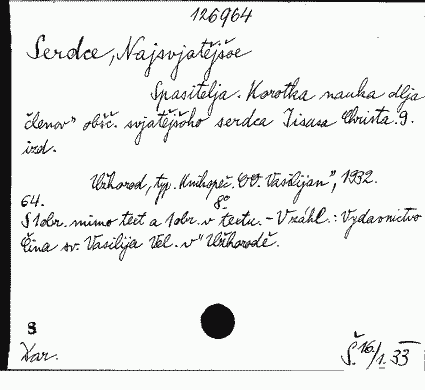 126964
Serdce, Najsvjatějšoe
Spasitelja. Korotka nauka dlja
členov" obšč. svjatějšoho serdca Iisusa Christa. 9.
izd.
Užhorod, typ. Knihopeč. OO. Vasilijan", 1932.
64. 8°
S 1 obr. mimo text a 1 obr. v textu. - V záhl.: Vydavnictvo
Čina sv. Vasilija Vel. v" Užhorodě.
S
Dar. Š. 16/1. 33